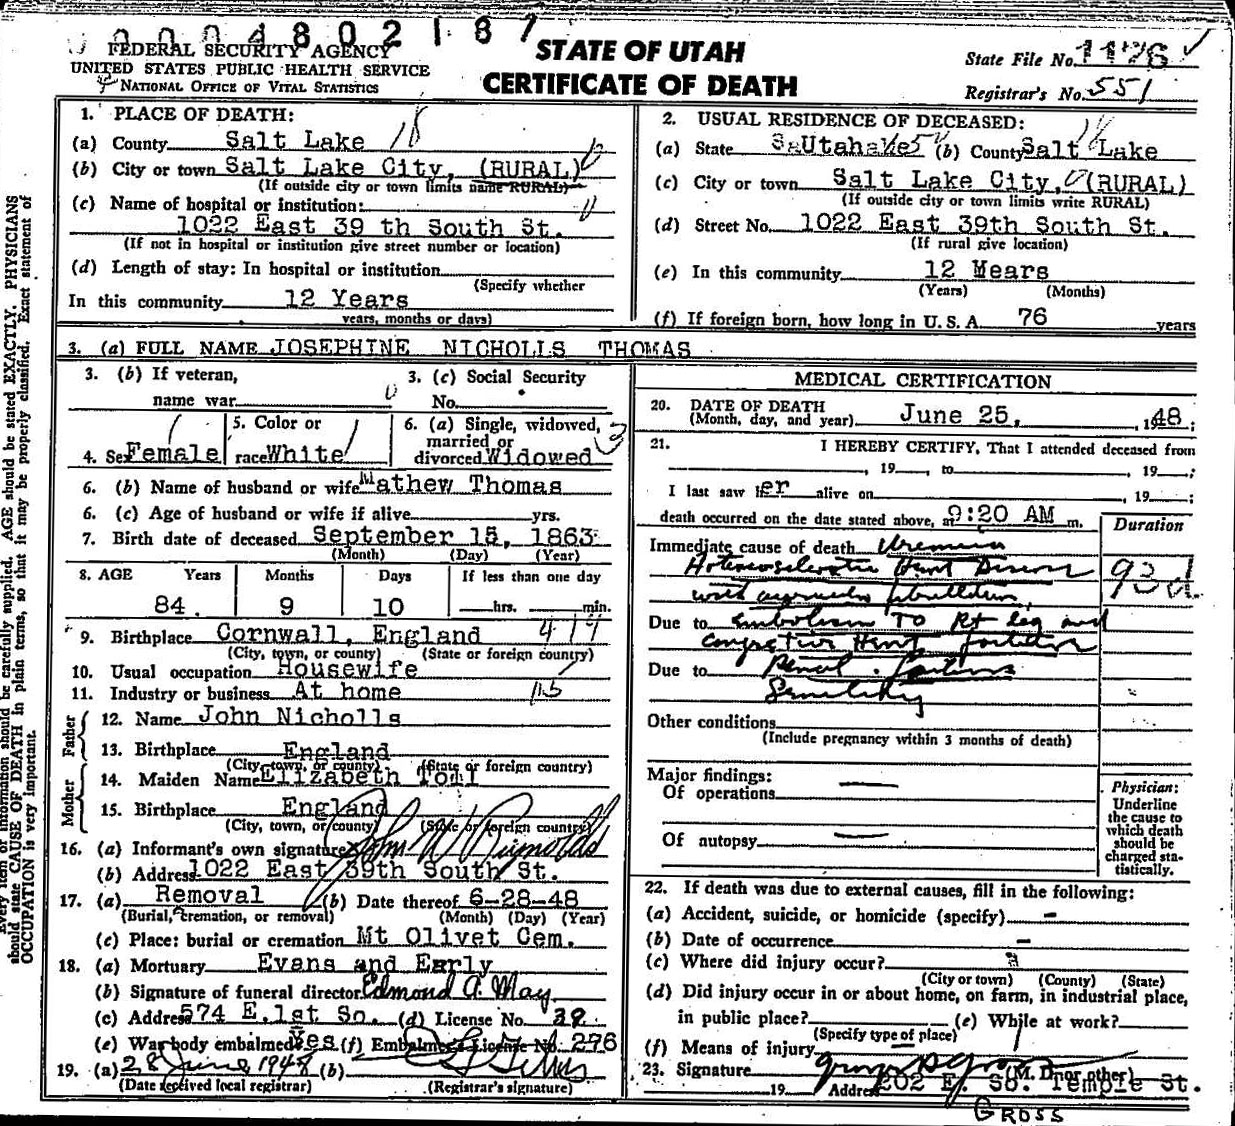 0004802187
FEDERAL SECURITY AGENCY
UNITED STATES PUBLIC HEALTH SERVICE
NATIONAL OFFICE OF VITAL STATISTICS
STATE OF UTAH
CERTIFICATE OF DEATH
State File No. 1176
Registrar's No. 551
1. PLACE OF DEATH:
(a) County Salt Lake 18
(b) City or town Salt Lake City, (RURAL)
(If outside city or town limits name RURAL)
(c) Name of hospital or institution:
1022 East 39 th South St.
(If not in hospital or institution give street number or location)
(d) Length of stay: In hospital or institution
(Specify whether
In this community 12 Years
years, months or days)
2. USUAL RESIDENCE OF DECEASED:
(a) State Utah (b) County Salt Lake
(c) City or town Salt Lake City, (RURAL)
(If outside city or town limits write RURAL)
(d) Street No. 1022 East 39th South St.
(If rural give location)
(e) In this community 12 Years
(Years) (Months)
(f) If foreign born, how long in U. S. A. 76 years
3. (a) FULL NAME JOSEPHINE NICHOLLS THOMAS
3. (b) If veteran,
name war
3. (c) Social Security
No.
4. Sex Female
5. Color or
race White
6. (a) Single, widowed,
married or
divorced Widowed
6. (b) Name of husband or wife Mathew Thomas
6. (c) Age of husband or wife if alive yrs.
7. Birth date of deceased September 15, 1863
(Month) (Day) (Year)
8. AGE Years Months Days If less than one day
84. 9 10 hrs. min.
9. Birthplace Cornwall, England 414
(City, town, or county) (State or foreign country)
10. Usual occupation Housewife
11. Industry or business At home
Father
12. Name John Nicholls
13. Birthplace England
(City, town, or county) (State or foreign country)
Mother
14. Maiden Name Elizabeth
15. Birthplace England
(City, town, or county) (State or foreign country)
16. (a) Informant's own signature John W Reynolds
(b) Address 1022 East 39th South St.
17. (a) Removal (b) Date thereof 6-28-48
(Burial, cremation, or removal) (Month) (Day) (Year)
(c) Place: burial or cremation Mt Olivet Cem.
18. (a) Mortuary Evans and Early
(b) Signature of funeral director Edmond A. May
(c) Address 574 E. 1st So. (d) License No. 39
(e) Was body embalmed Yes (f) Embalmer's License No. 276
19. (a) 28 June 1948 (b)
(Date received local registrar) (Registrar's signature)
MEDICAL CERTIFICATION
20. DATE OF DEATH
(Month, day, and year) June 25, , 1948;
21. I HEREBY CERTIFY, That I attended deceased from
, 19 , to , 19 ;
I last saw her alive on , 19 ;
death occurred on the date stated above, at 9:20 AM m.
Duration
Immediate cause of death Uremia
Arteriosclerotic Heart Disease 93d
with auricular fibrillation
Due to embolism to Rt leg and
congestive Heart failure
Due to Renal failure
Senility
Other conditions
(Include pregnancy within 3 months of death)
Major findings:
Of operations
Of autopsy
Physician:
Underline
the cause to
which death
should be
charged sta-
tistically.
22. If death was due to external causes, fill in the following:
(a) Accident, suicide, or homicide (specify) -
(b) Date of occurrence -
(c) Where did injury occur?
(City or town) (County) (State)
(d) Did injury occur in or about home, on farm, in industrial place,
in public place? (e) While at work?
(Specify type of place)
(f) Means of injury
23. Signature (M. D. or other)
19 Address 202 E. So. Temple St.
GROSS
Every item of information should be carefully supplied. AGE should be stated EXACTLY. PHYSICIANS
should state CAUSE OF DEATH in plain terms, so that it may be properly classified. Exact statement of
OCCUPATION is very important.